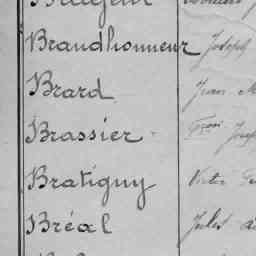 Brandhonneur Joseph
Brard Jean M
Brassier
Bratigny Victor
Bréal Jules